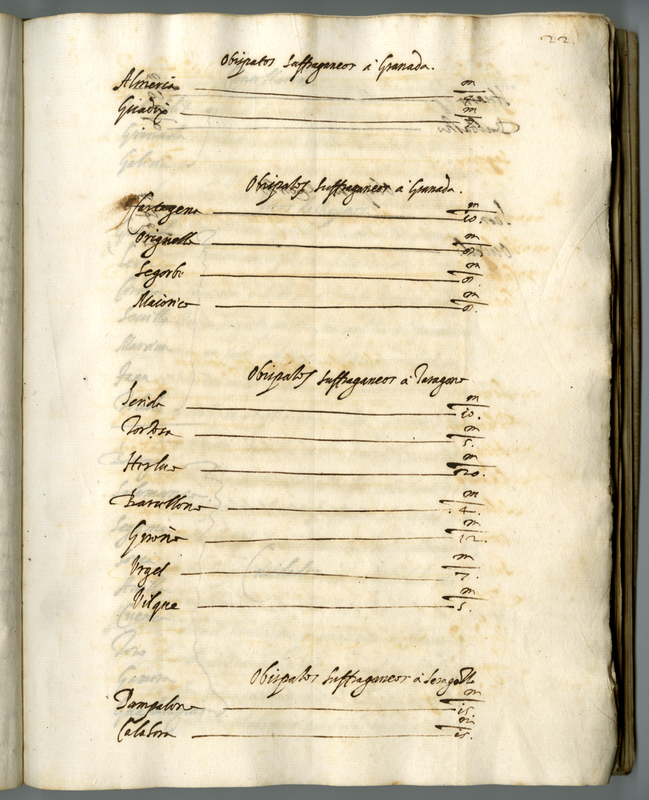 22.
Obispatos Suffraganeos à Granada.
Almeria m
Guadix m
Obispatos Suffraganeos à Granada.
Cartagena m 10.
Origuella m 8.
Segorbe m 8.
Maiorica m 8.
Obispatos Suffraganeos à Taragona
Lerida m 10.
Tortosa m 5.
m 20.
Barcellona m 4.
Girona m 12.
Urgel m 7.
m 5.
Obispatos Suffraganeos à Seragosa
Pampalona m 15.
Calahora m 15.